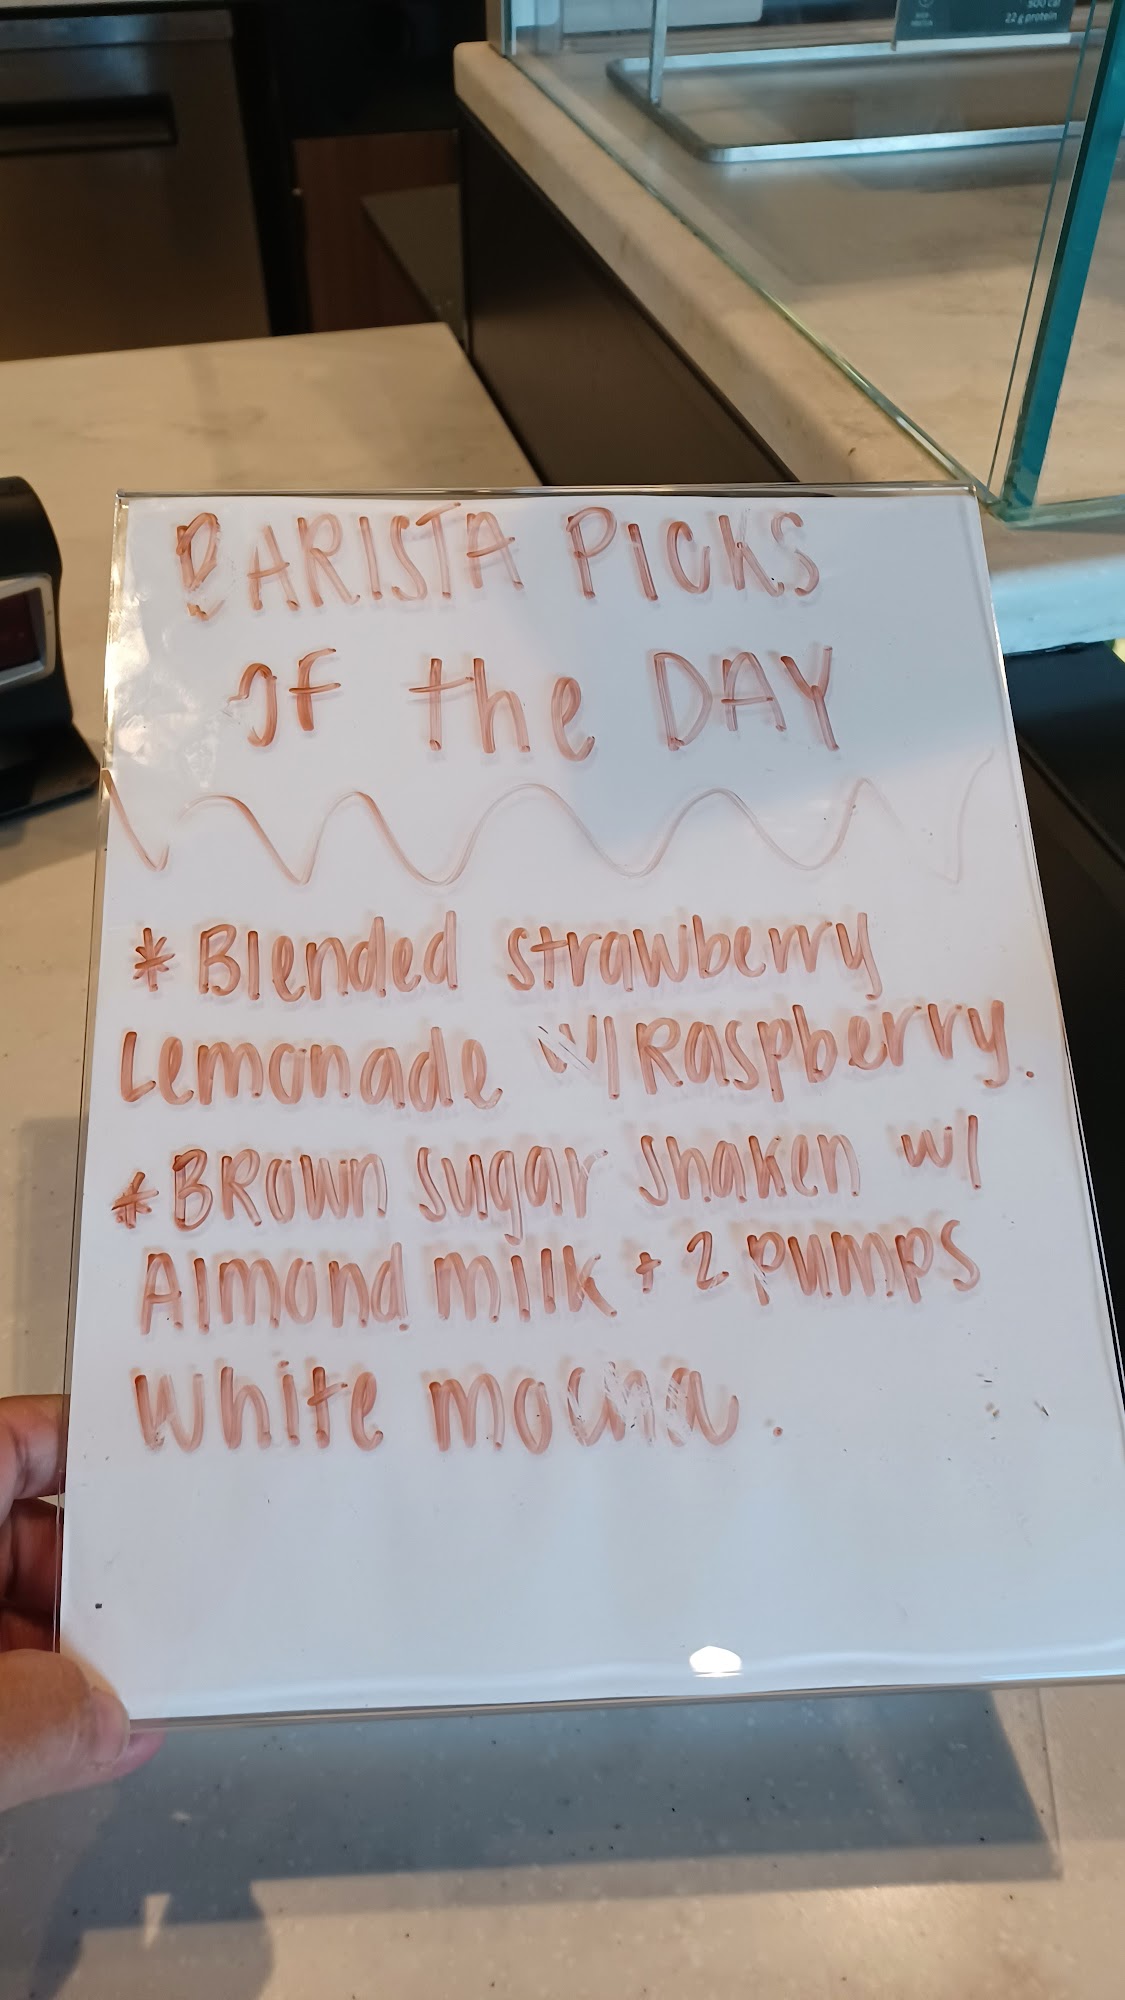 500 cal
22 g protein
BARISTA PICKS
OF the DAY
*Blended strawberry
Lemonade w/ Raspberry.
*BROWN sugar shaken w/
Almond milk + 2 pumps
White mocha.